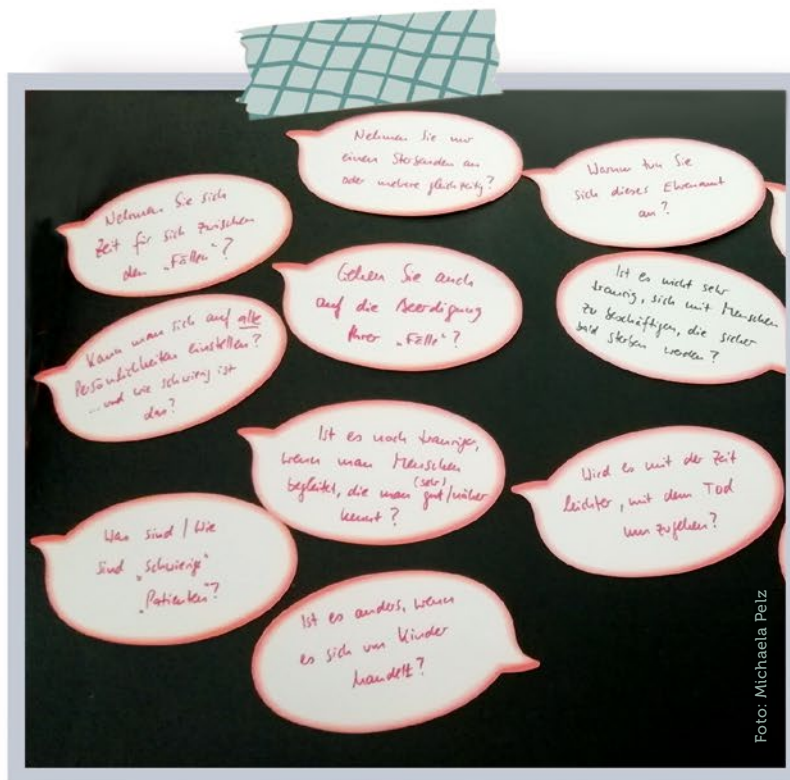 Nehmen Sie nur
einen Sterbenden an
oder mehere gleichzeitig?
Warum tun Sie
sich dieses Ehrenamt
an?
Nehmen Sie sich
Zeit für sich zwischen
den „Fällen"?
Gehen Sie auch
auf die Beerdigung
Ihrer „Fälle"?
Ist es nicht sehr
traurig, sich mit Menschen
zu beschäftigen, die sicher
bald sterben werden?
Kann man sich auf alle
Persönlichkeiten einstellen?
...und wie schwierig ist
das?
Ist es noch trauriger,
wenn man Menschen
(sehr)
begleitet, die man gut/näher
kennt?
Wird es mit der Zeit
leichter, mit dem Tod
umzugehen?
Was sind / Wie
sind „schwierige"
„Patienten"?
Ist es anders, wenn
es sich um Kinder
handelt?
Foto: Michaela Pelz